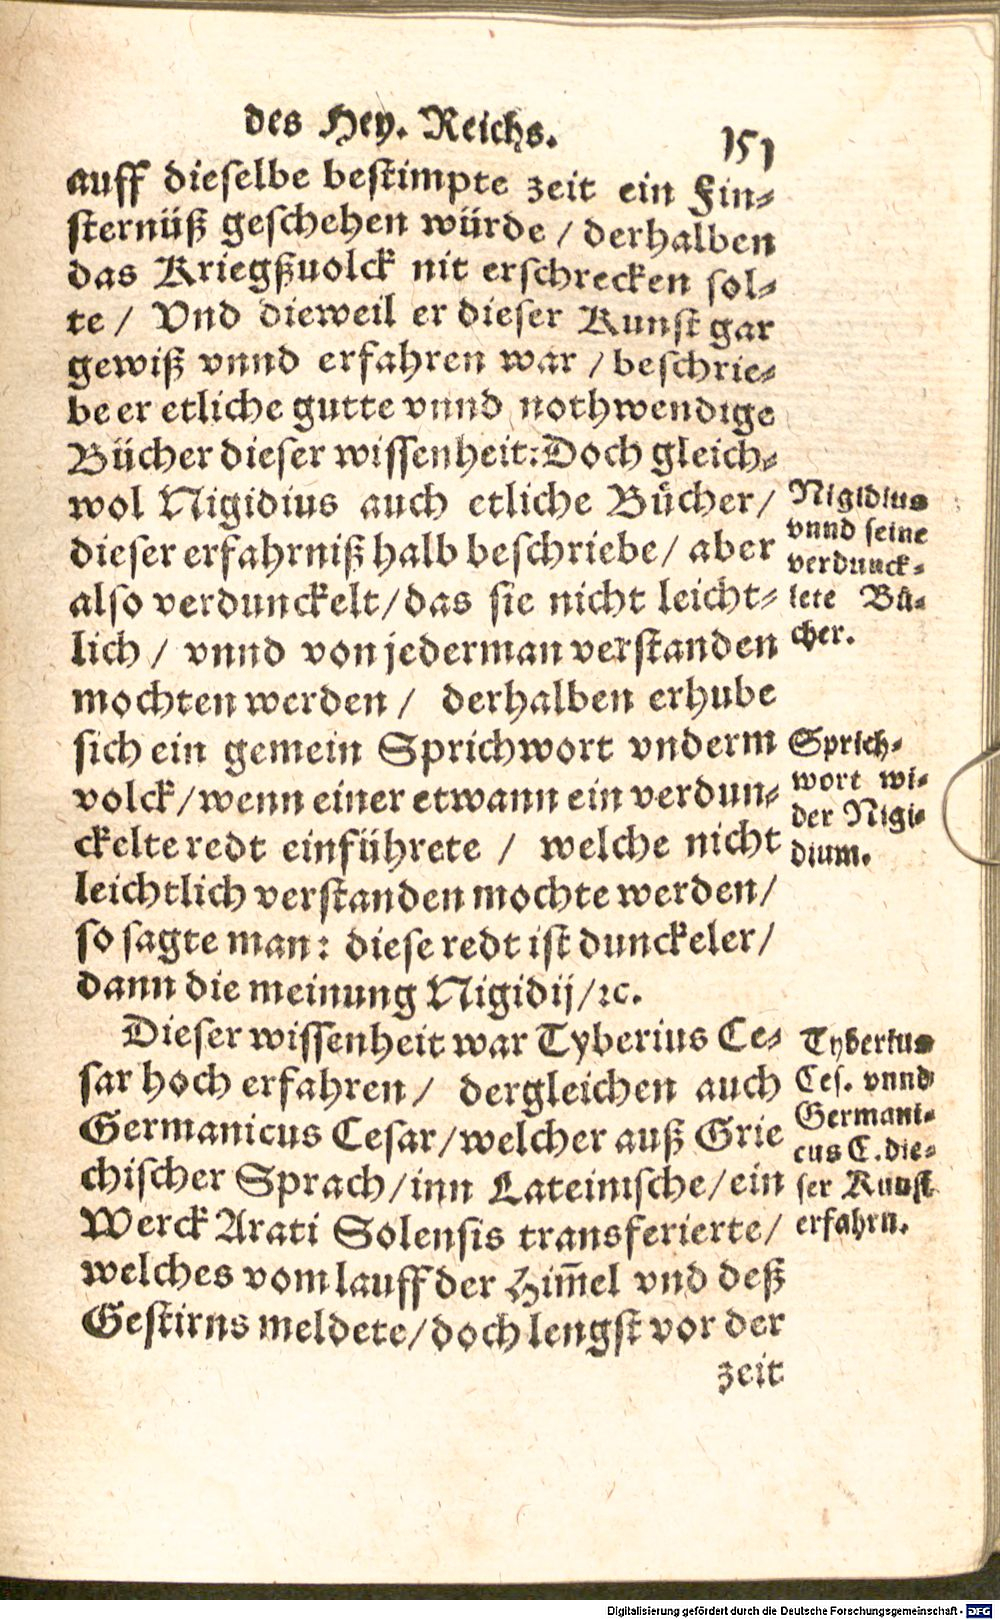 des Hey. Reichs.
151
auff dieselbe bestimpte zeit ein Fin-
sternüß geschehen würde / derhalben
das Kriegßuolck nit erschrecken sol-
te / Vnd dieweil er dieser Kunst gar
gewiß vnnd erfahren war / beschrie-
be er etliche gutte vnnd nothwendige
Bücher dieser wissenheit: Doch gleich-
wol Nigidius auch etliche Bücher /
dieser erfahrniß halb beschriebe / aber
also verdunckelt / das sie nicht leicht-
lich / vnnd von jederman verstanden
mochten werden / derhalben erhube
sich ein gemein Sprichwort vnderm
volck / wenn einer etwann ein verdun-
ckelte redt einführete / welche nicht
leichtlich verstanden mochte werden /
so sagte man: diese redt ist dunckeler /
dann die meinung Nigidij / ꝛc.
Dieser wissenheit war Tyberius Ce-
sar hoch erfahren / dergleichen auch
Germanicus Cesar / welcher auß Grie
chischer Sprach / inn Lateinische / ein
Werck Arati Solensis transferierte /
welches vom lauff der Him̃el vnd deß
Gestirns meldete / doch lengst vor der
zeit
Nigidius
vnnd seine
verdunck-
lete Bü-
cher.
Sprich-
wort wi-
der Nigi-
dium.
Tyberius
Ces. vnnd
Germani-
cus C. die-
ser Kunst
erfahrn.
Digitalisierung gefördert durch die Deutsche Forschungsgemeinschaft - DFG